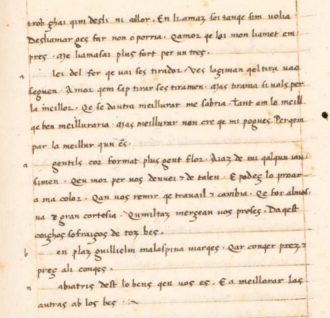 trob ghai qim desli. ni aillor. En li amaz sos tanqe sim volia
Deshamar ges far non o porria. Qamor qe los mon liamet em
pres. Me liamasar plus fort per un tres.
lei del fer qe vai ves tirador. Ves logiman qol tira vao
seguen. Amor qem sap tirar ses tiramen. Mas trama si vols per
la meillor. Qe se dautra meillurar me sabria. Tant em lo meill
qe ben meilluraria. Mas meillurar non cre qe mi pogues. Perqem
par la meillur qun es.
a gentils cor format plus gent flor. A iaz de mi qalqun iau
simen. Qeu mor per vos denuei & de talen. E podez lo proar
a ma color. Qan vos remir qe travaill & cambia. Qe for almos
na & gran cortesia. Qumiltaz mergean vos preses. Daqest
coichos sofraigos de toz bes.
b en plaz guillielm malaspina marqes. Qar conqer prez &
prez als conqes.
a biatris dest lo bens qen vos es. E a meillorar las
autras ab los bes.